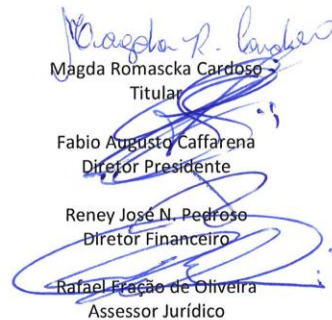 Magda R. Cardoso
Magda Romascka Cardoso
Titular
Fabio Augusto Caffarena
Diretor Presidente
Reney José N. Pedroso
Diretor Financeiro
Rafael Fração de Oliveira
Assessor Jurídico